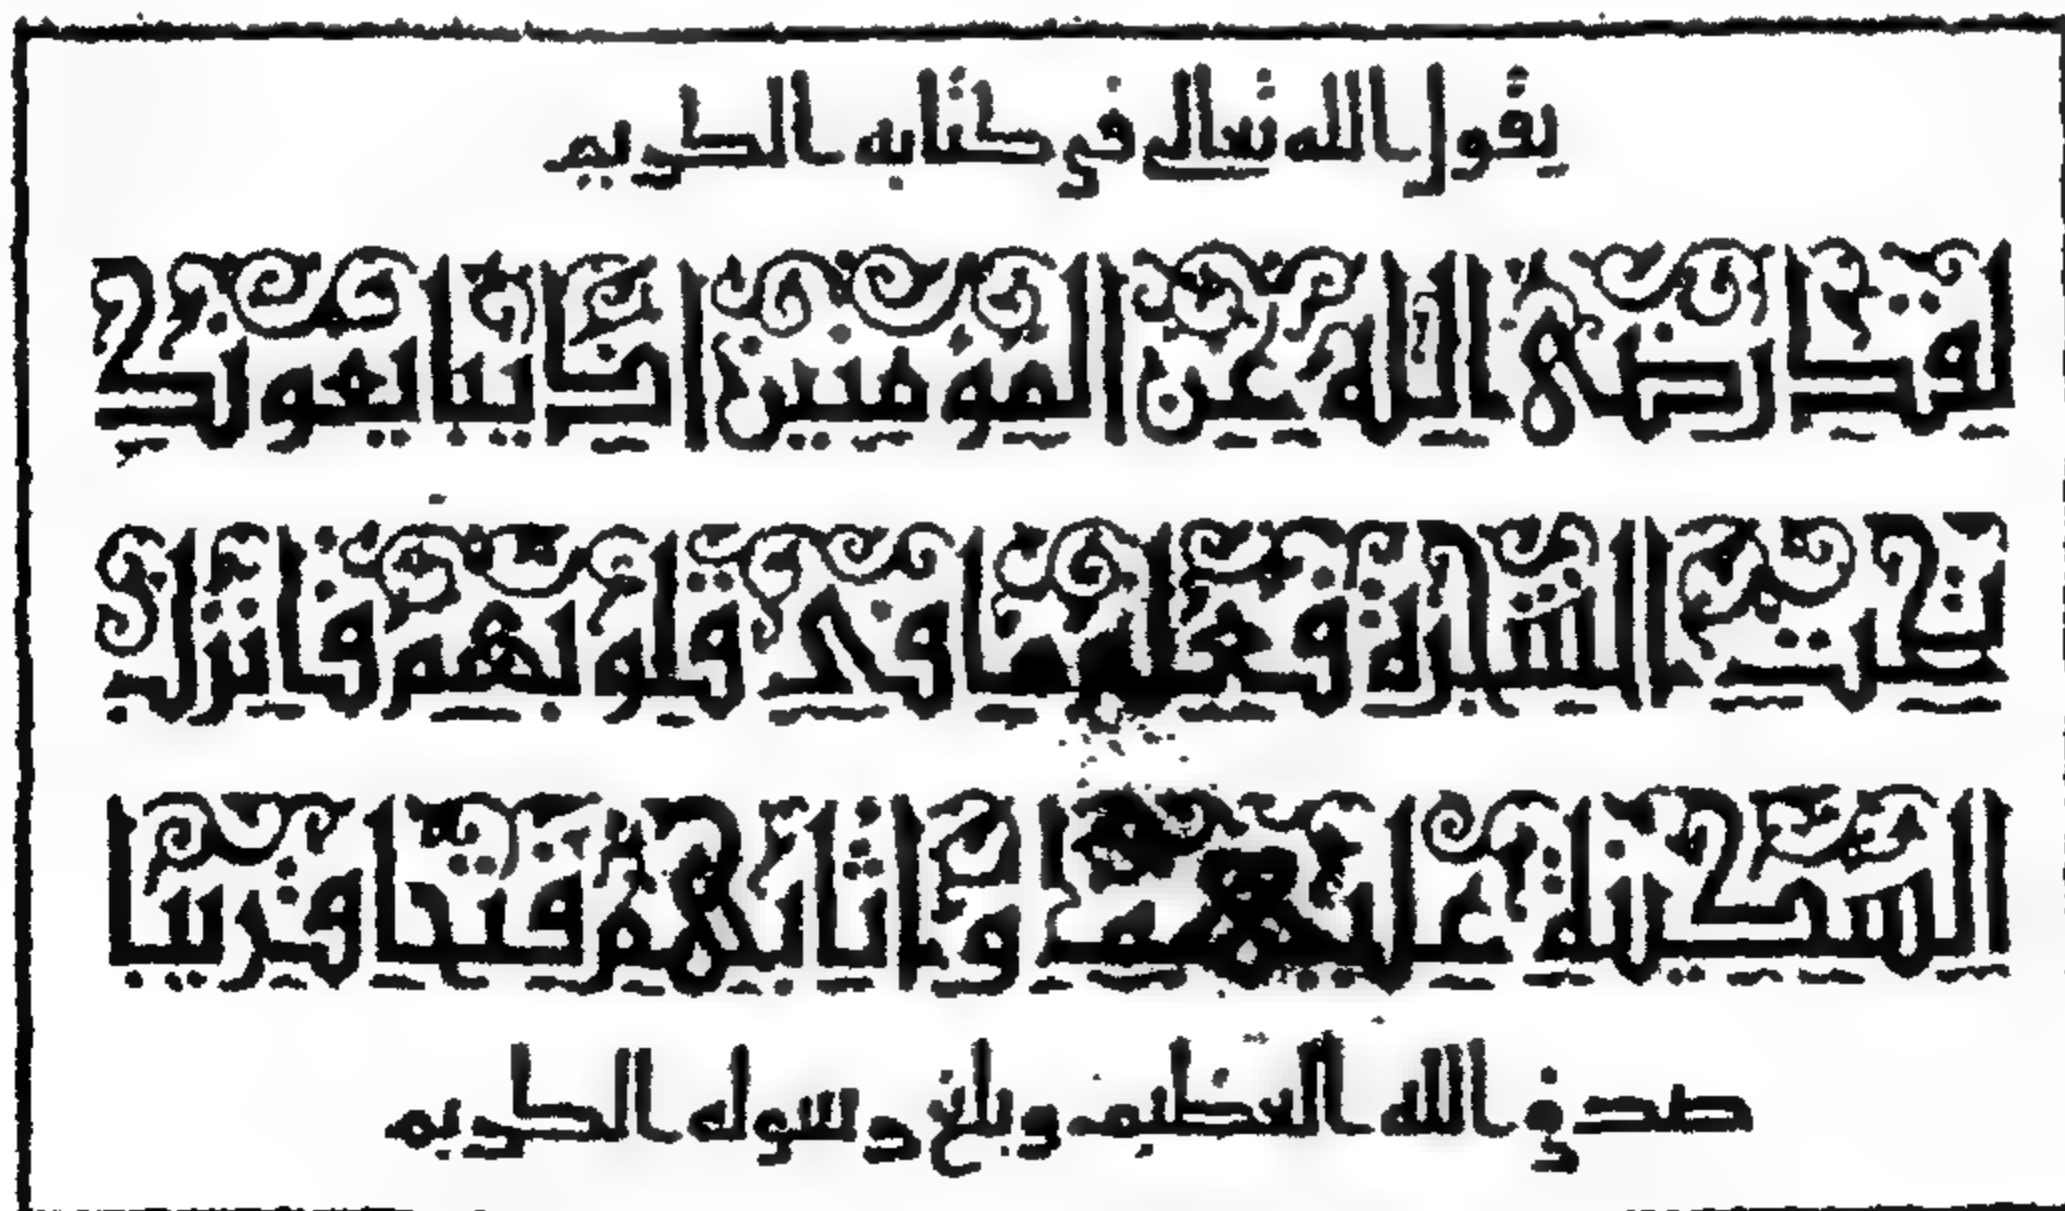 يقول الله تعالى في كتابه الكريم
لقد رضي الله عن المؤمنين إذ يبايعونك
تحت الشجرة فعلم ما في قلوبهم فأنزل
السكينة عليهم وأثابهم فتحا قريبا
صدق الله العظيم وبلغ رسوله الكريم